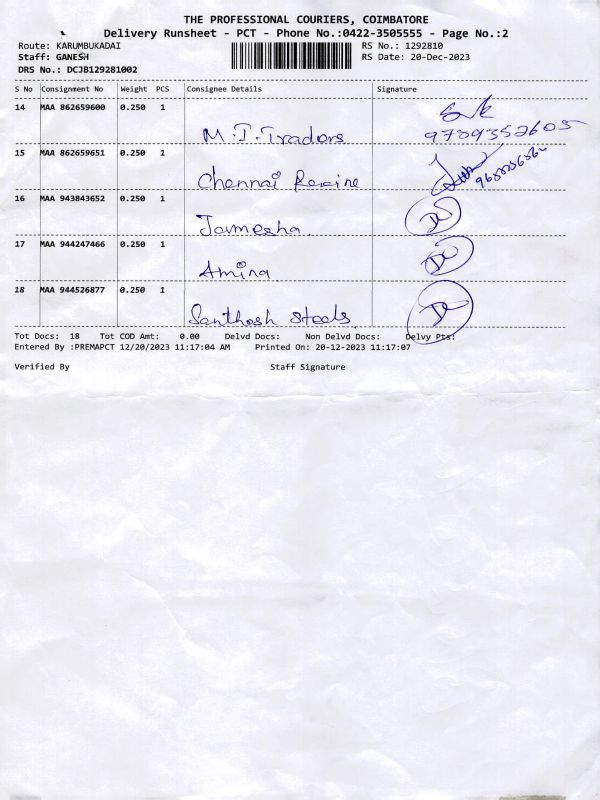 THE PROFESSIONAL COURIERS, COIMBATORE
Delivery Runsheet - PCT - Phone No.:0422-3505555 - Page No.:2
Route: KARUMBUKADAI RS No.: 1292810
Staff: GANESH RS Date: 20-Dec-2023
DRS No.: DCJB129281002
S No Consignment No Weight PCS Consignee Details Signature
14 MAA 862659600 0.250 1
M.I. Tradors 9789352605
15 MAA 862659651 0.250 1
Chennai Rexine
16 MAA 943843652 0.250 1
Jamesha.
17 MAA 944247466 0.250 1
Amina
18 MAA 944526877 0.250 1
Santhosh Steels
Tot Docs: 18 Tot COD Amt: 0.00 Delvd Docs: Non Delvd Docs: Delvy Pts:
Entered By :PREMAPCT 12/20/2023 11:17:04 AM Printed On: 20-12-2023 11:17:07
Verified By Staff Signature